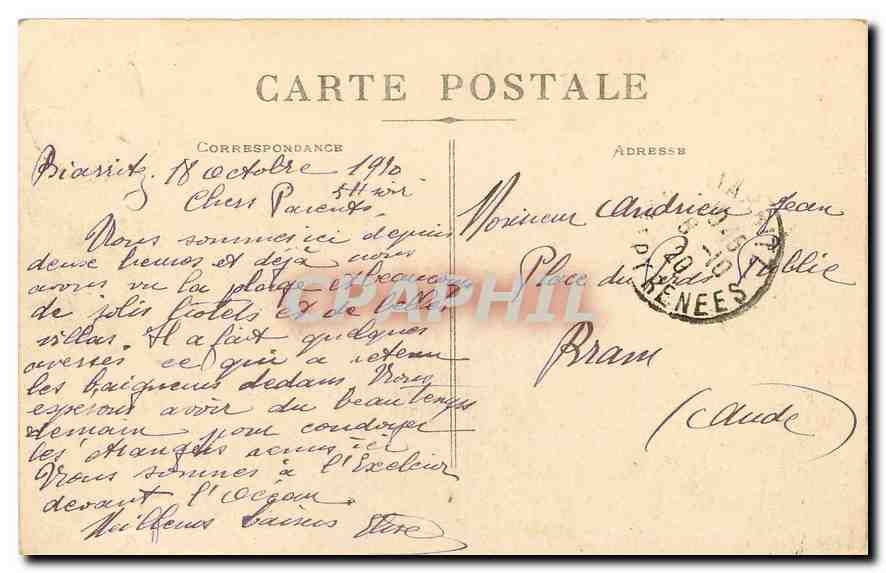 CARTE POSTALE
CORRESPONDANCE
Biarritz 18 octobre 1920
5H soir
Chers Parents,
Nous sommes ici depuis
deux heures et déjà nous
avons vu la plage et beaucoup
de jolis hotels et de belles
villas. Il a fait quelques
averses ce qui a retenu
les baigneurs dedans. Nous
esperons avoir du beau temps
demain pour
les étrangers venus ici
Nous sommes à l'Excelsior
devant l'Océan
Meilleurs baisers
ADRESSE
Monsieur Andrieu Jean
Place du Poids Public
Bram
(Aude)
20
PYRENEES
CAPHIL